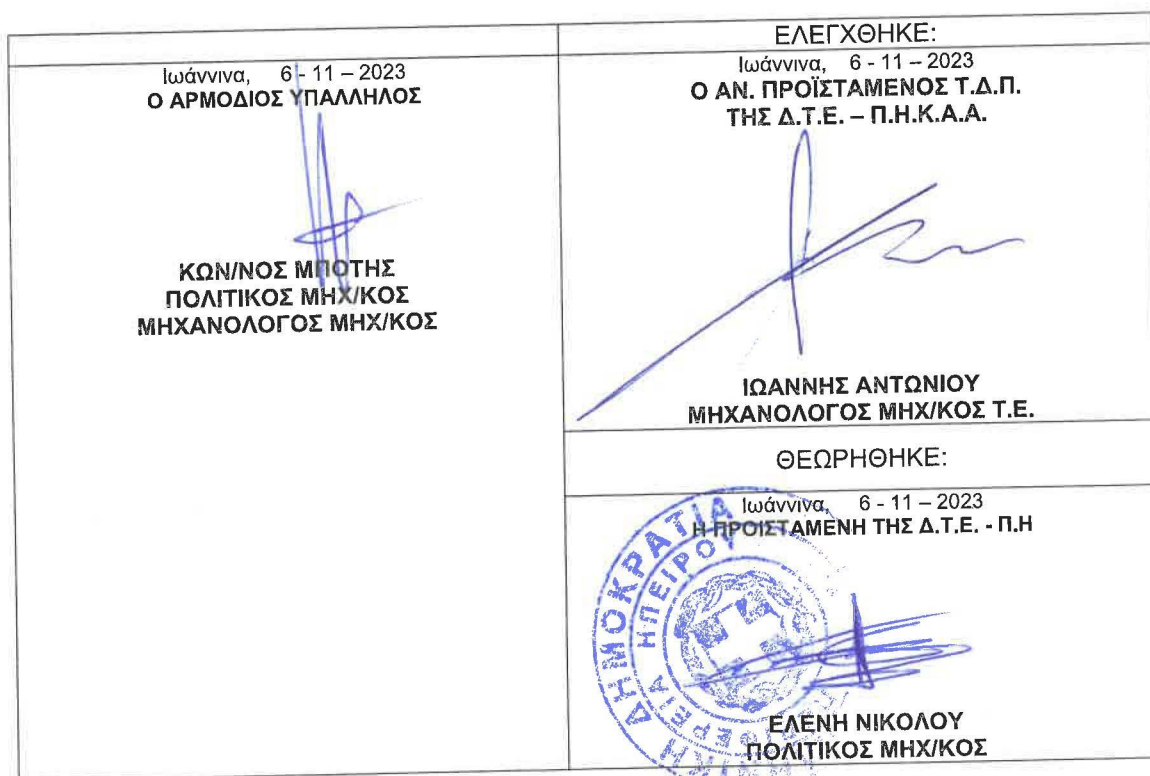 Ιωάννινα, 6 - 11 – 2023
Ο ΑΡΜΟΔΙΟΣ ΥΠΑΛΛΗΛΟΣ
ΚΩΝ/ΝΟΣ ΜΠΟΤΗΣ
ΠΟΛΙΤΙΚΟΣ ΜΗΧ/ΚΟΣ
ΜΗΧΑΝΟΛΟΓΟΣ ΜΗΧ/ΚΟΣ
ΕΛΕΓΧΘΗΚΕ:
Ιωάννινα, 6 - 11 – 2023
Ο ΑΝ. ΠΡΟΪΣΤΑΜΕΝΟΣ Τ.Δ.Π.
ΤΗΣ Δ.Τ.Ε. – Π.Η.Κ.Α.Α.
ΙΩΑΝΝΗΣ ΑΝΤΩΝΙΟΥ
ΜΗΧΑΝΟΛΟΓΟΣ ΜΗΧ/ΚΟΣ Τ.Ε.
ΘΕΩΡΗΘΗΚΕ:
Ιωάννινα, 6 - 11 – 2023
Η ΠΡΟΙΣΤΑΜΕΝΗ ΤΗΣ Δ.Τ.Ε. - Π.Η
ΔΗΜΟΚΡΑΤΙΑ
ΗΠΕΙΡΟΥ
ΕΛΕΝΗ ΝΙΚΟΛΟΥ
ΠΟΛΙΤΙΚΟΣ ΜΗΧ/ΚΟΣ